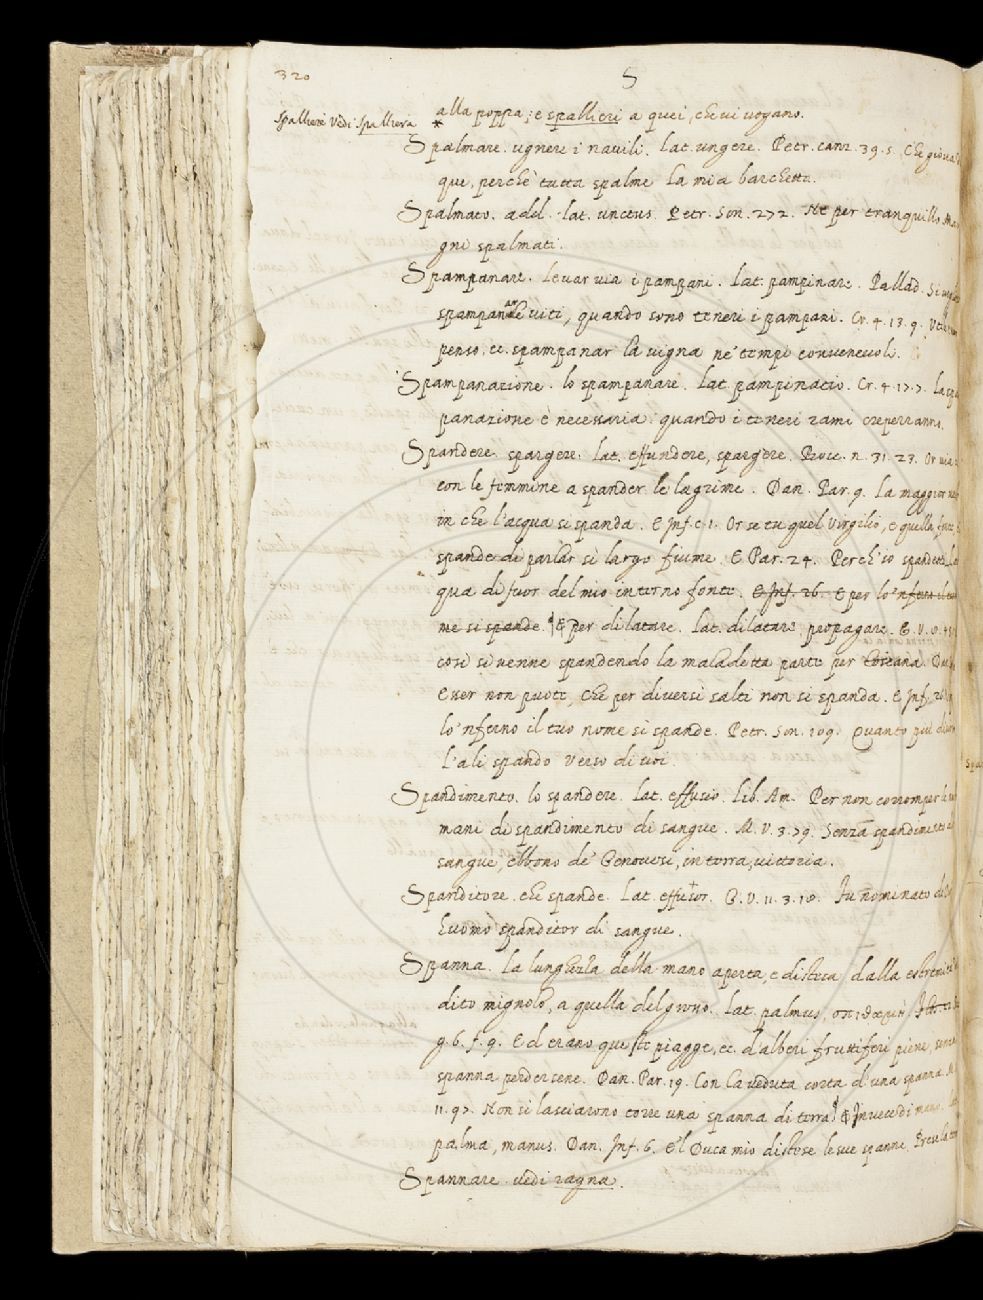 320
S
Spallieri Vedi Spalliera
alla poppa; e spallieri a quei, che vi vogano.
Spalmare. ugnere i navili. Lat. ungere. Petr. canz. 39. 5. Che giova
que, perchè tutta spalme La mia barchetta.
Spalmato. add. lat. unctus. Petr. Son. 272. Nè per tranquillo mar
gni spalmati.
Spampanare. levar via i pampani. Lat. pampinare. Pallad. Si
viti, quando sono teneri i pampani. Cr. 4. 13. 9.
penso, ec. spampanar la vigna ne' tempi convenevoli.
Spampanazione. lo spampanare. Lat. pampinatio. Cr. 4. 17. 7. La
panazione è necessaria quando i teneri rami creperranno.
Spandere. spargere. Lat. effundere, spargere. Bocc. n. 31. 23. Or via
con le femmine a spander le lagrime. Dan. Par. 9. La maggior
in che l'acqua si spanda. E Inf. c. 1. Or se tu quel Virgilio, e quella fonte
spande di parlar sì largo fiume. E Par. 24. Perch'io spandessi
qua di fuor del mio interno fonte. E Inf. 26. E per lo 'nferno il tuo
me si spande. E per dilatare. Lat. dilatare, propagare. G. V. 
così si venne spandendo la maladetta parte per toscana. Dan.
Esser non puote, che per diversi salti non si spanda. E Inf. 26.
lo 'nferno il tuo nome si spande. Petr. Son. 109. Quanto più
L'ali spando verso di voi.
Spandimento. lo spandere. Lat. effusio. Lib. Am. Per non corromper le
mani di spandimento di sangue. M. V. 3. 79. Senza spandimento di
sangue, ebbono de' Genovesi, intera, vittoria.
Spanditore. che spande. Lat. effusor. G. V. 11. 3. 18. Fu nominato
huomo spanditor di sangue.
Spanna. La lunghezza della mano aperta, e distesa dalla estremità
dito mignolo, a quella del grosso. Lat. palmus, σπιθαμή.
g. 6. f. 9. Ed erano queste piagge, ec. d'alberi fruttiferi piene, senza
spanna perdersene. Dan. Par. 19. Con la veduta corta d'una spanna. M.
11. 97. Non si lasciarono torre una spanna di terra. E In vece di mano.
palma, manus. Dan. Inf. 6. E 'l Duca mio distese le sue spanne, Prese la
Spannare. vedi ragna.